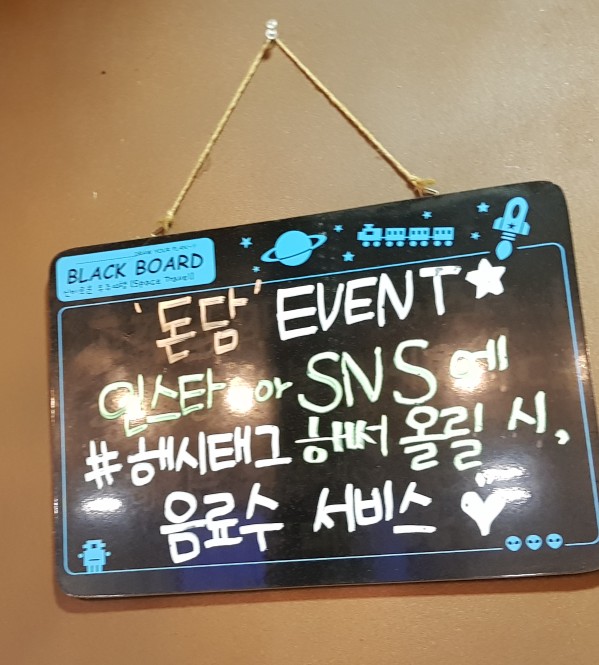 BLACK BOARD
(Space Travel)
'돈담' EVENT
인스타 or SNS에
#해시태그 해서 올릴 시,
음료수 서비스